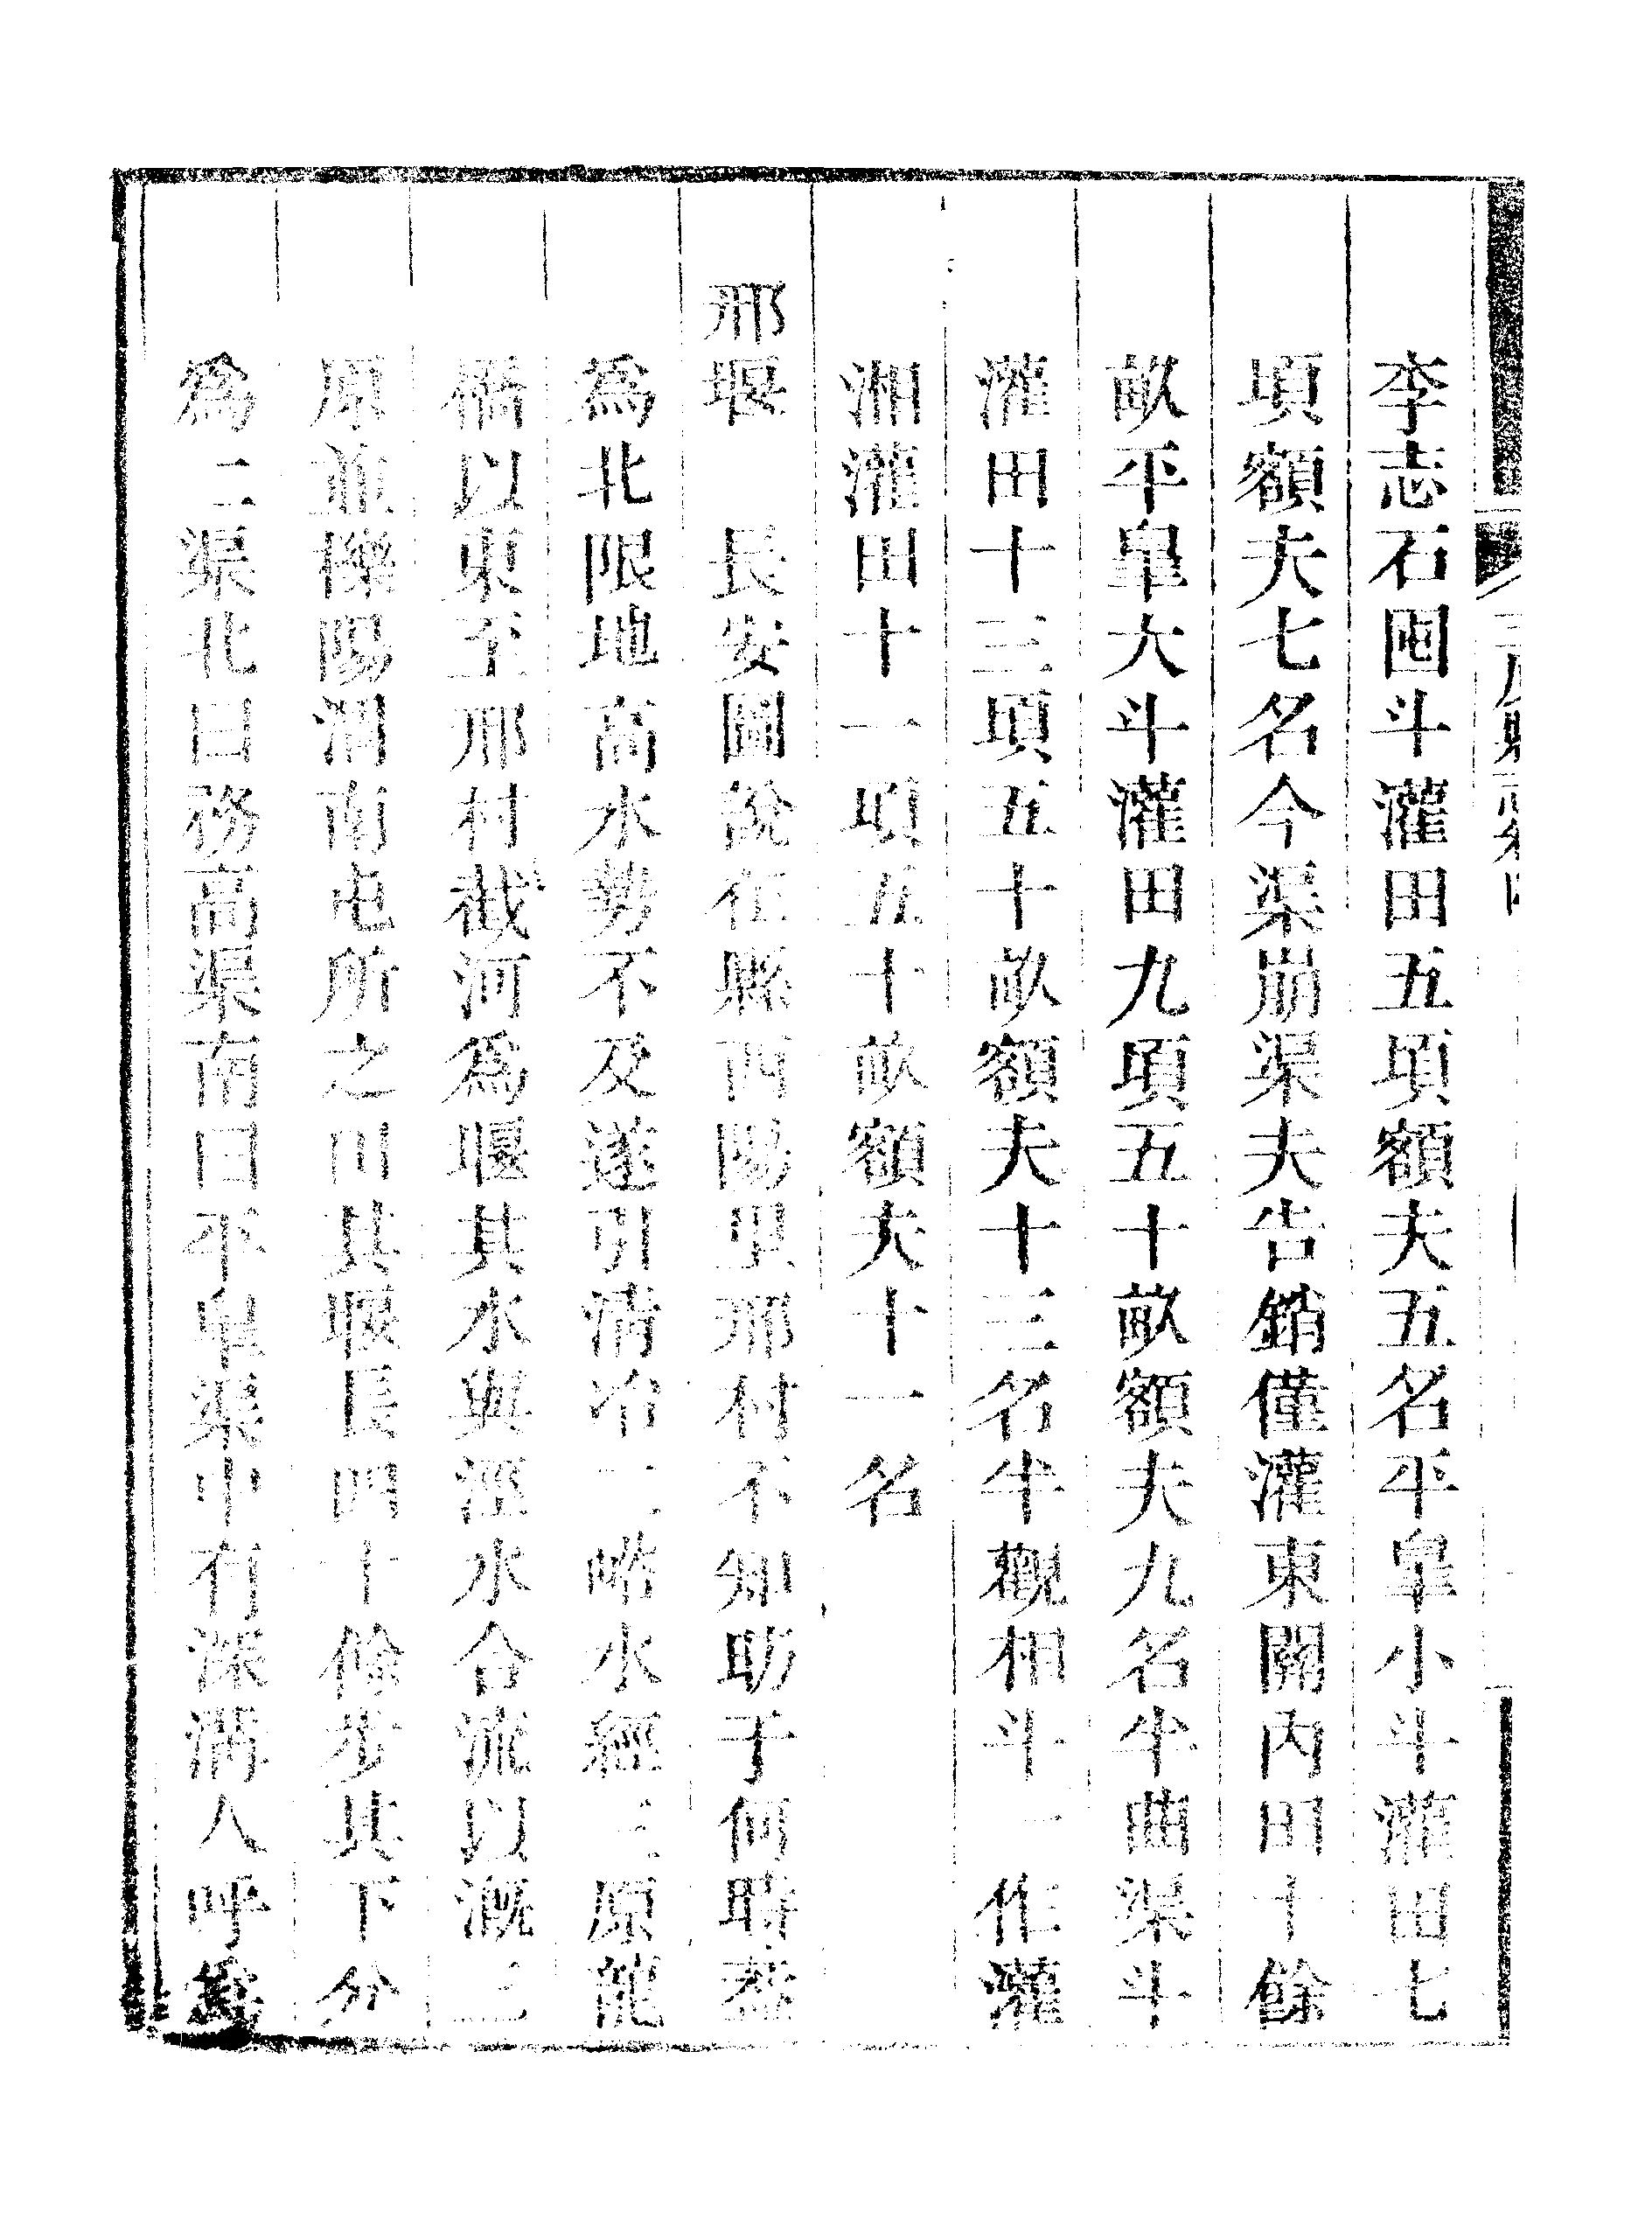 李志石囤斗灌田五頃額夫五名平皐小斗灌田七
頃額夫七名今渠崩渠夫告銷僅灌東關內田十餘
畝平皐大斗灌田九頃五十畝額夫九名半曲渠斗
灌田十三頃五十畝額夫十三名半觀相斗一作灌
湘灌田十一頃五十畝額夫十一名
邢堰 長安圖說在縣西陽里邢村不知昉于何時蓋
為北限地高水勢不及遂引淸冶二峪水經三原龍
橋以東至邢村截河為堰其水與涇水合流以漑三
原並櫟陽渭南屯所之田其堰長四十餘步其下分
為二渠北曰務高渠南曰平皐渠中有深溝人呼為